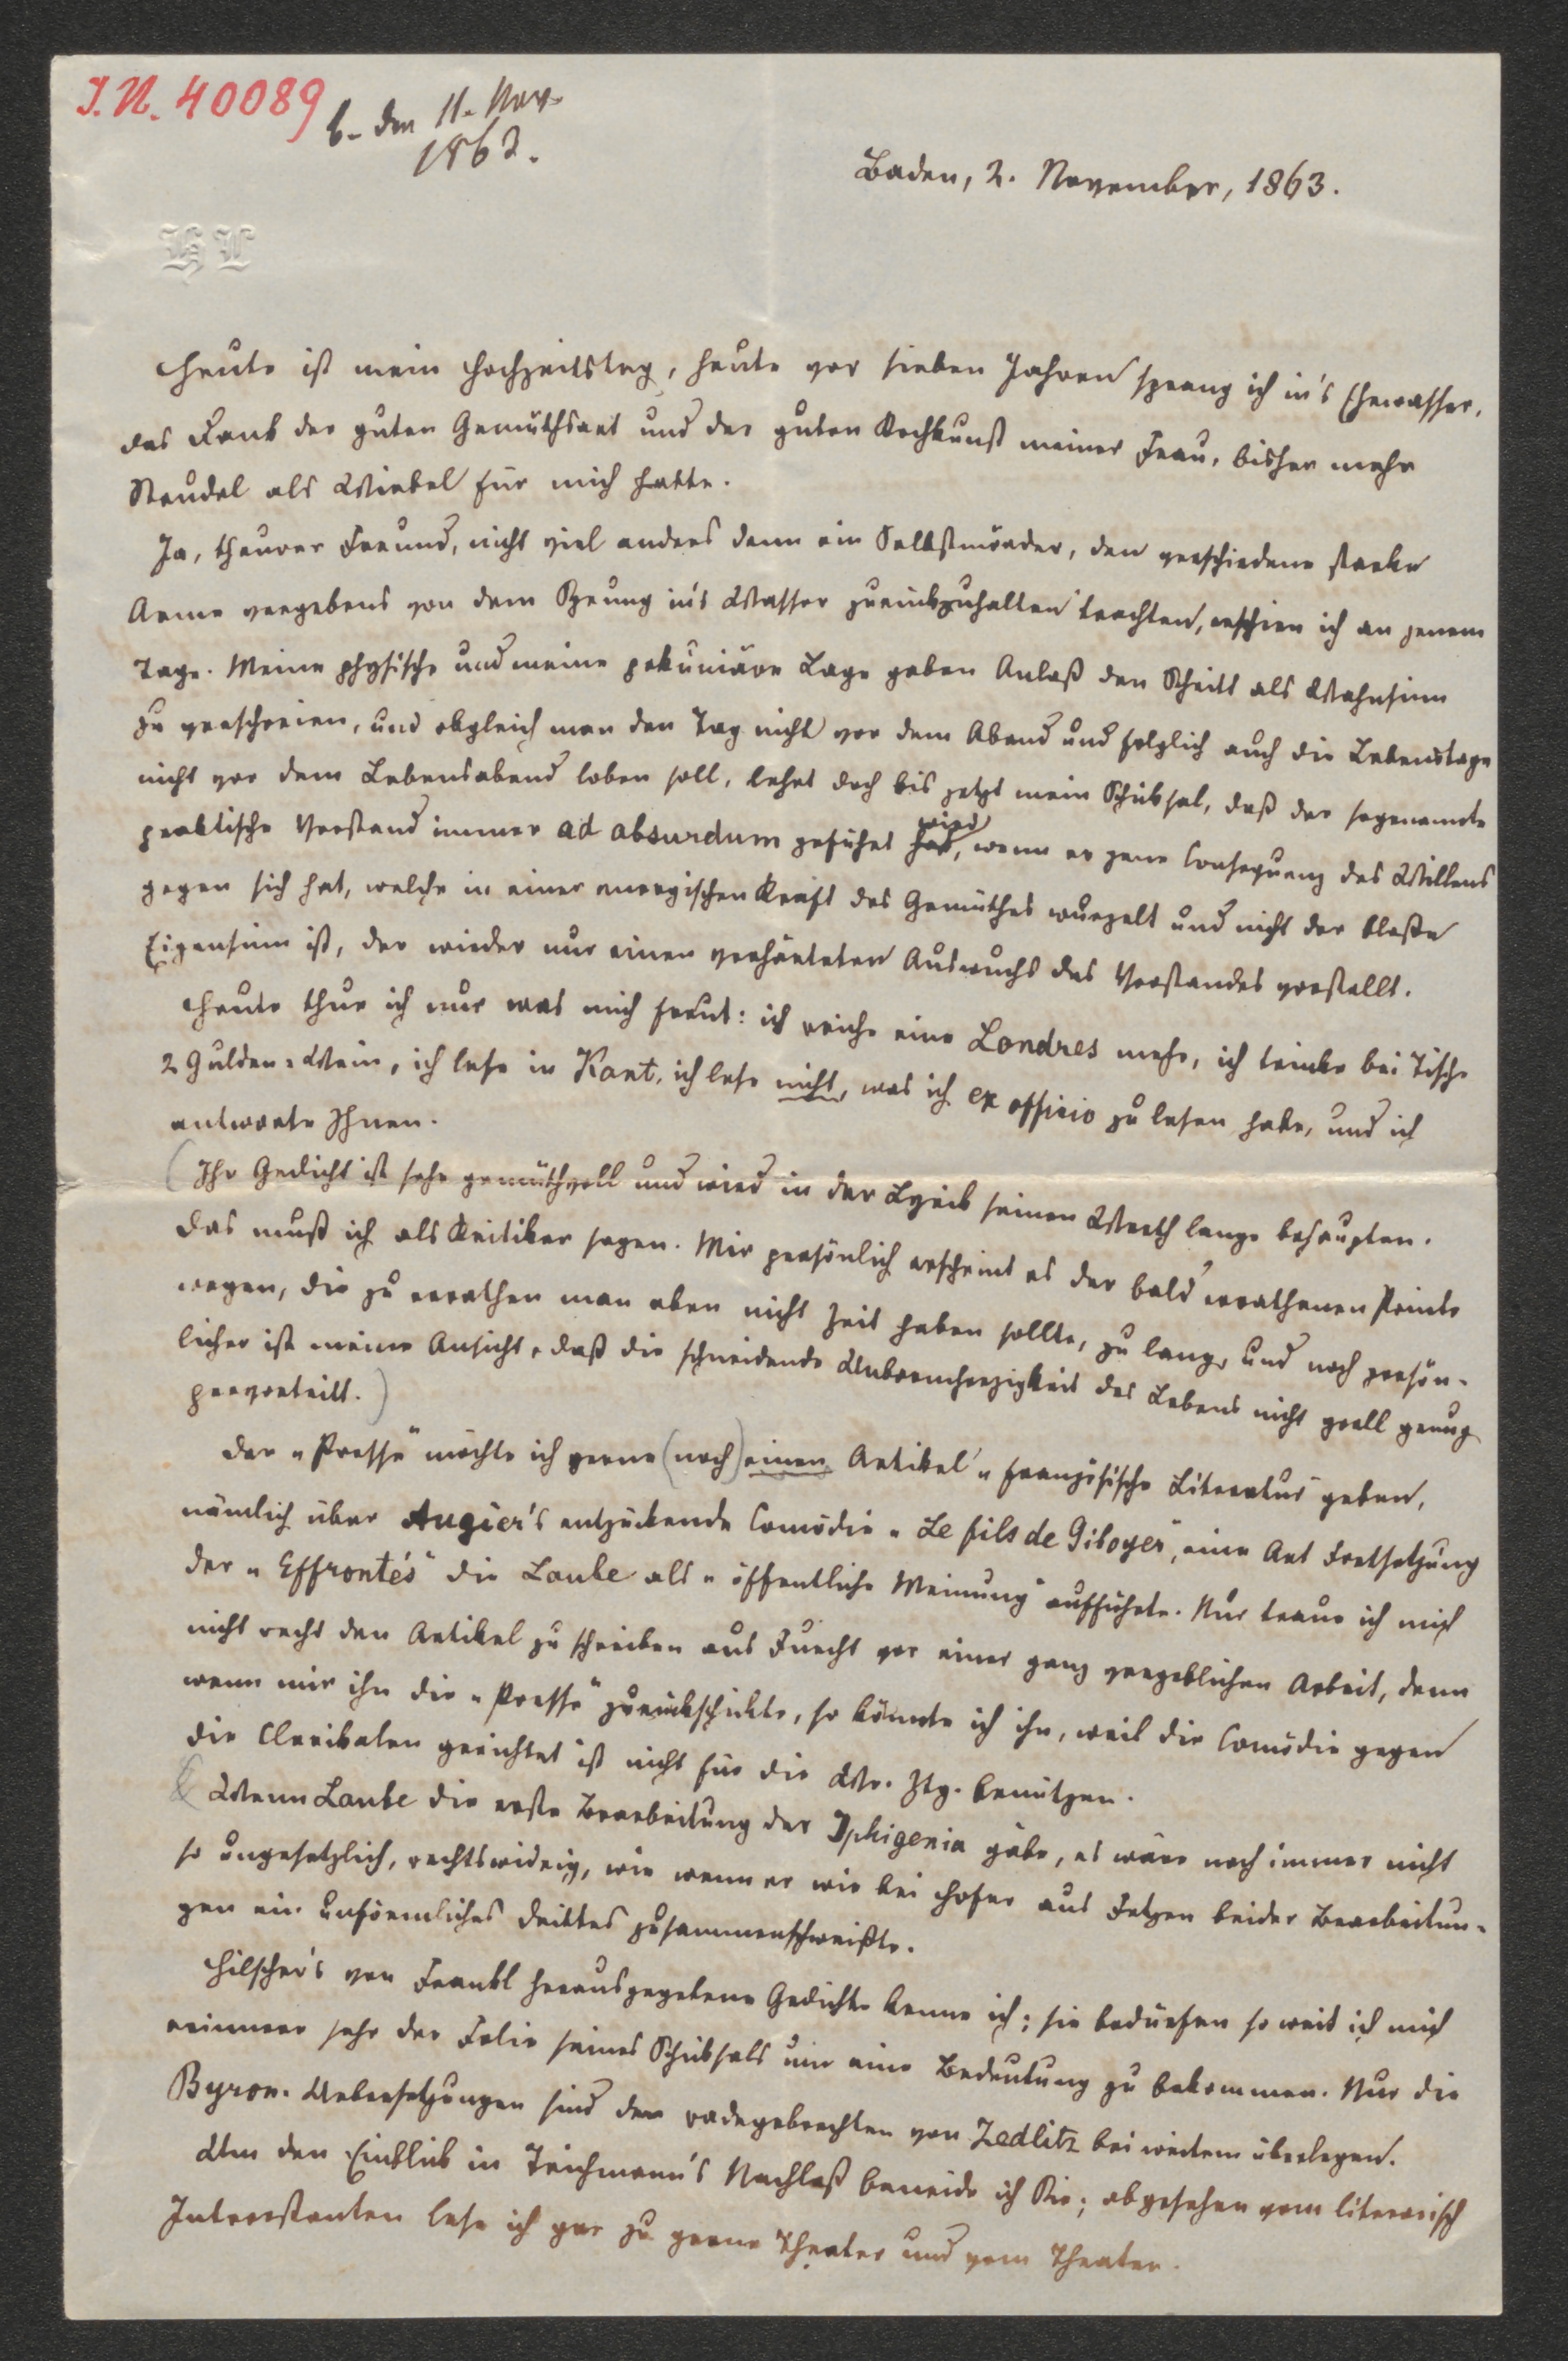 J. N. 40089
b. den 11. Nov.
1863.
Baden, 2. November, 1863.
HL
Heute ist mein Hochzeitstag, heute vor sieben Jahren sprang ich in's Ehewasser,
das Dank der guten Gemüthsart und der guten Kochkunst meiner Frau, bisher mehr
Strudel als Wirbel für mich hatte.
Ja, theurer Freund, nicht viel anders denn ein Selbstmörder, den verschiedene starke
Arme vergebens von dem Sprung in's Wasser zurückzuhalten trachten, erschien ich an jenem
Tage. Meine physische und meine pekuniäre Lage gaben Anlaß den Schritt als Wahnsinn
zu verschreien, und obgleich man den Tag nicht vor dem Abend und folglich auch die Lebenstage
nicht vor dem Lebensabend loben soll, lehrt doch bis jetzt mein Schicksal, daß der sogenannte
praktische Verstand immer ad absurdum geführt wird, wenn er jene Consequenz des Willens
gegen sich hat, welche in einer energischen Kraft des Gemüthes wurzelt und nicht der bloße
Eigensinn ist, der wieder nur einen verhärteten Auswuchs des Verstandes vorstellt.
Heute thue ich nur was mich freut: ich rauche eine Londres mehr, ich trinke bei Tische
2 Gulden-Wein, ich lese in Kant, ich lese nicht, was ich ex officio zu lesen habe, und ich
antworte Ihnen.
(Ihr Gedicht ist sehr gemüthvoll und wird in der Lyrik seinen Werth lange behaupten.
Das muß ich als Kritiker sagen. Mir persönlich erscheint es der bald errathenen Pointe
wegen, die zu errathen man eben nicht Zeit haben sollte, zu lang, und noch persön-
licher ist meine Ansicht, daß die schneidende Unbarmherzigkeit des Lebens nicht grell genug
hervortritt.)
Der „Presse" möchte ich gerne (noch) einen Artikel „französische Literatur" geben,
nämlich über Augier's entzückende Comödie „Le fils de Giboyer", eine Art Fortsetzung
der „Effrontés" die Laube als „öffentliche Meinung" aufführte. Nur traue ich mich
nicht recht den Artikel zu schreiben aus Furcht vor einer ganz vergeblichen Arbeit, denn
wenn mir ihn die „Presse" zurückschickte, so könnte ich ihn, weil die Comödie gegen
die Clerikalen gerichtet ist nicht für die Wr. Ztg. benützen.
Wenn Laube die erste Bearbeitung der Iphigenia gäbe, es wäre noch immer nicht
so ungesetzlich, rechtswidrig, wie wenn er wie bei Hofer aus Fetzen beider Bearbeitun-
gen ein unförmliches Drittes zusammenschweißte.
Hilscher's von Frankl herausgegebene Gedichte kenne ich; sie bedürfen so weit ich mich
erinnere sehr der Folie seines Schicksals um eine Bedeutung zu bekommen. Nur die
Byron-Uebersetzungen sind den radegebrechten von Zedlitz bei weitem überlegen.
Um den Einblick in Teichmann's Nachlaß beneide ich Sie; abgesehen vom literarisch
Interessanten lese ich gar zu gerne Theater und vom Theater.